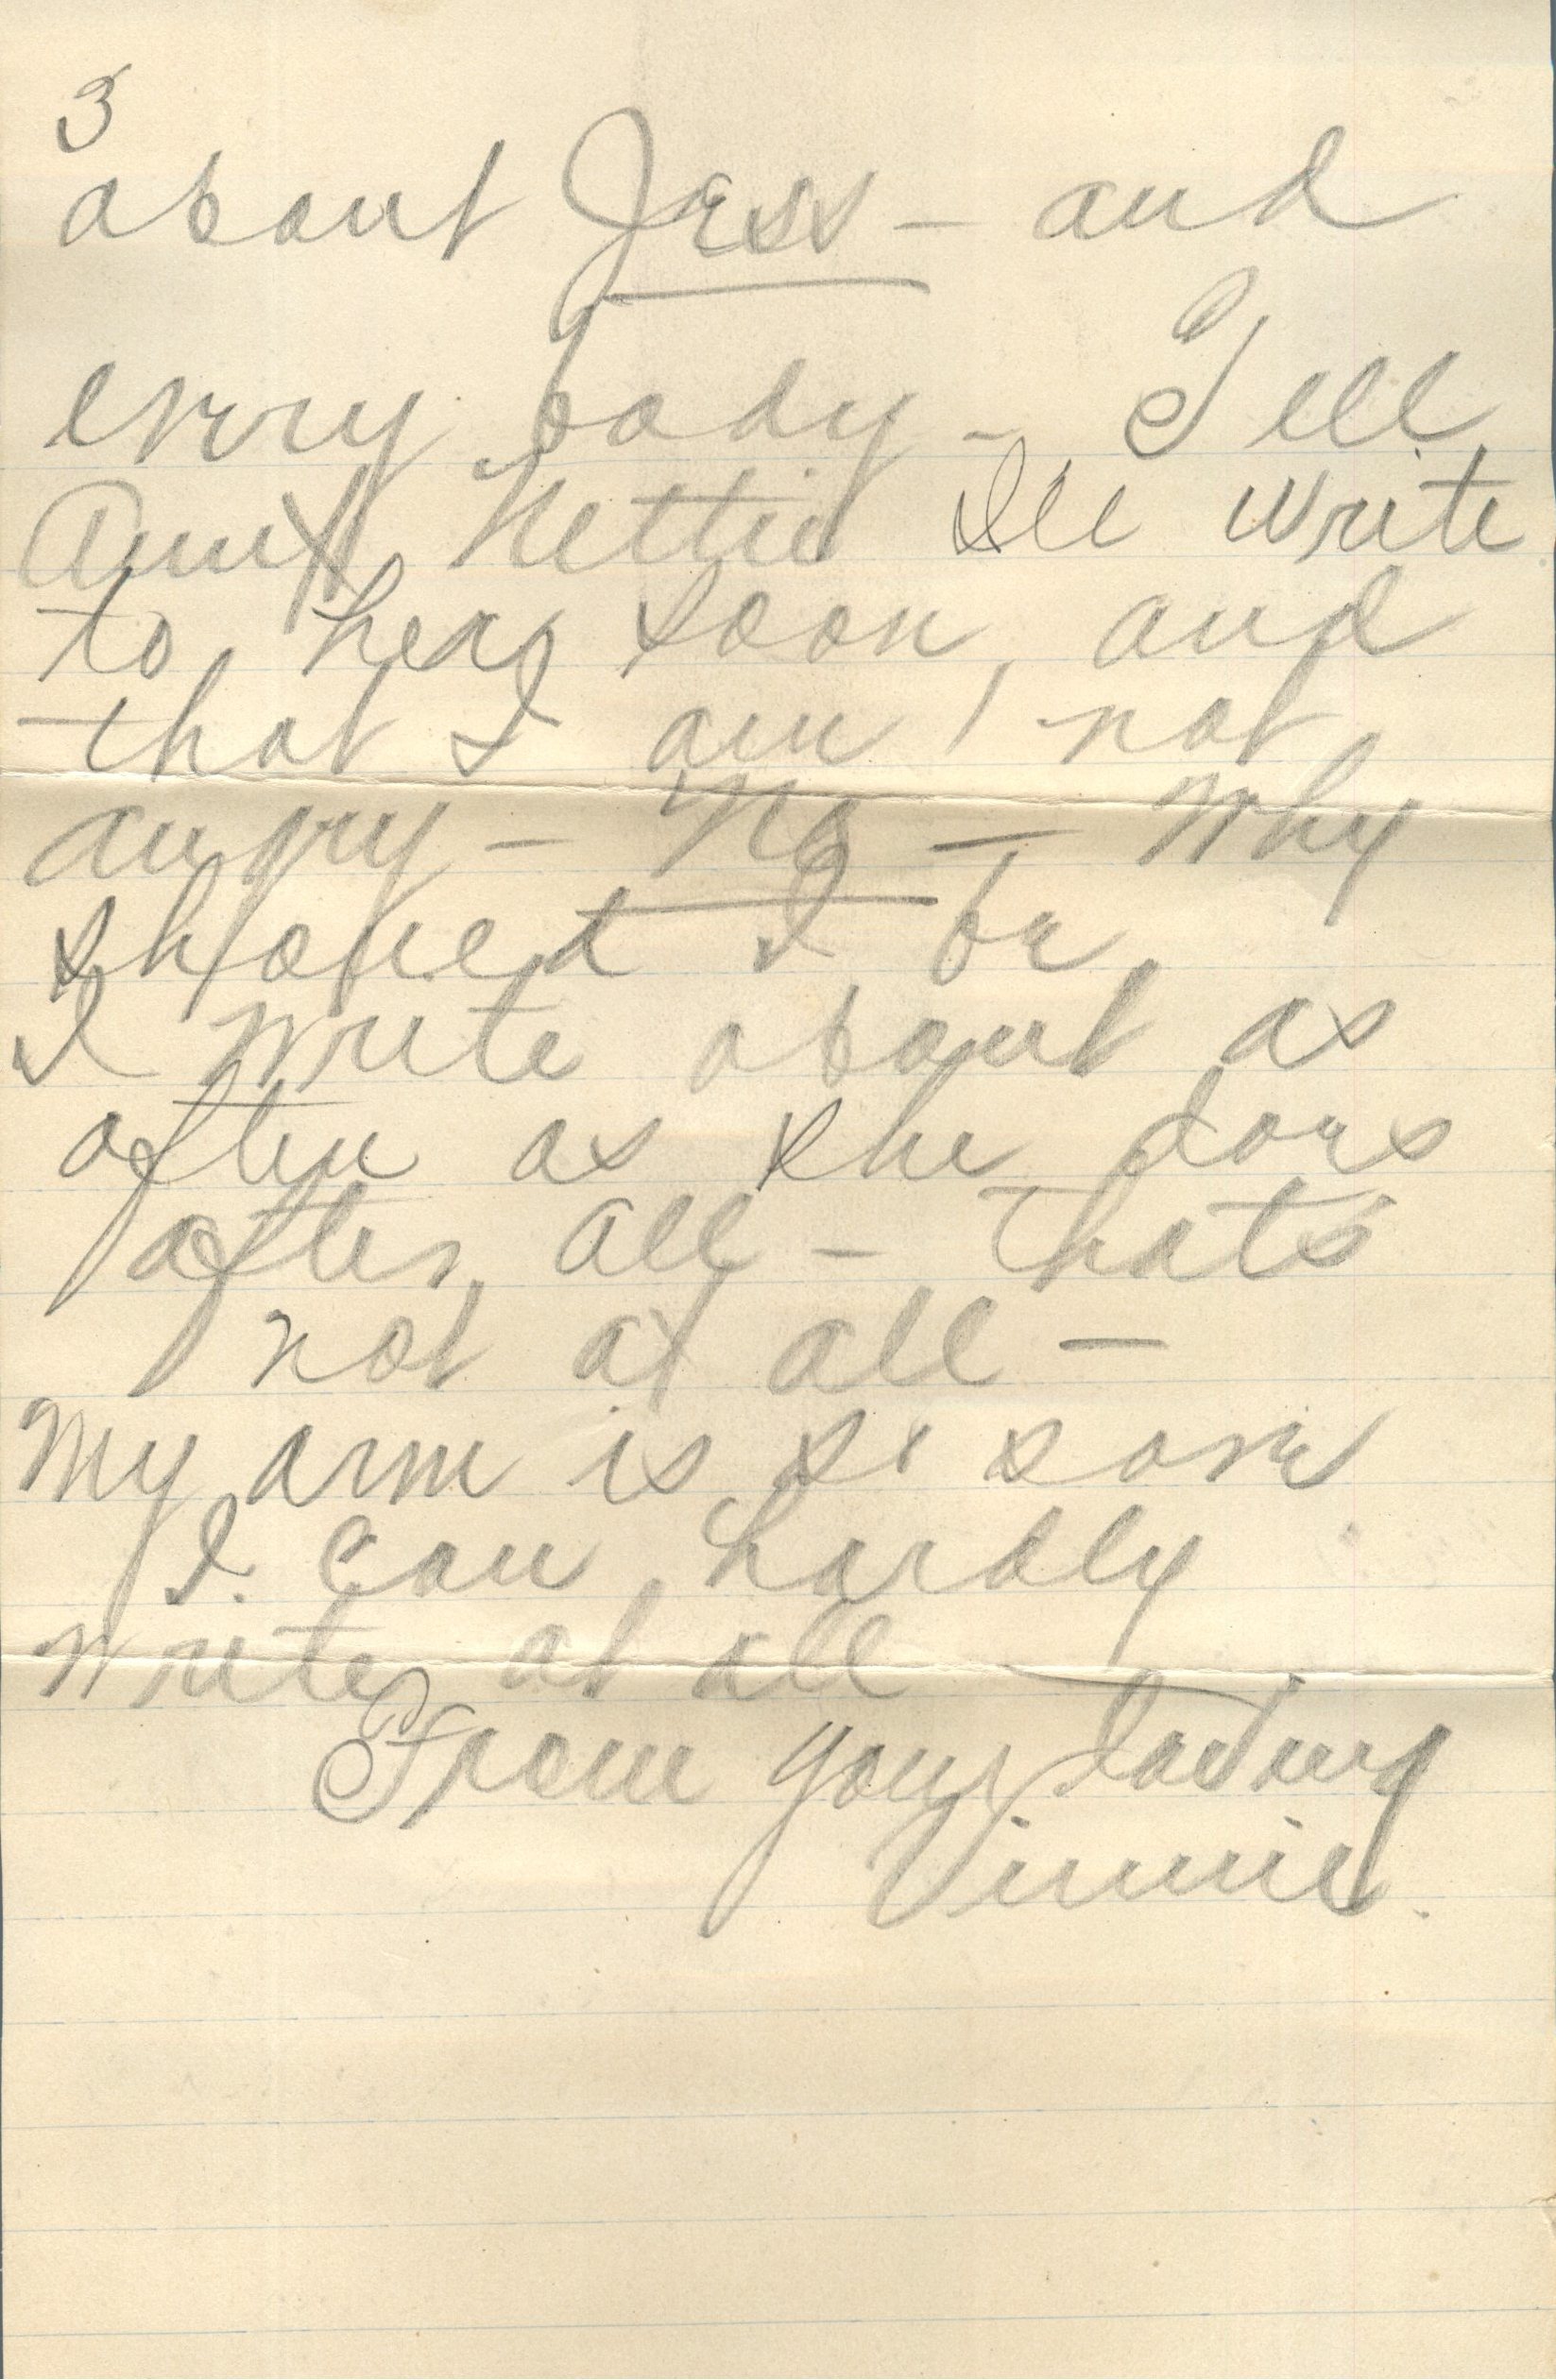 3
about Jess - and
every body - Tell
Aunt Nettie Ill write
to her soon, and
that I am not
angry - No - Why
should I be
I write about as
often as she does
after all - thats
not at all -
My arm is so sore
I can hardly
write at all -
From your loving
Vinnie.